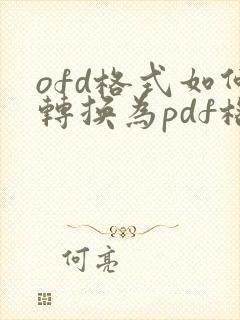 ofd格式如
轉換為pdf
何亮